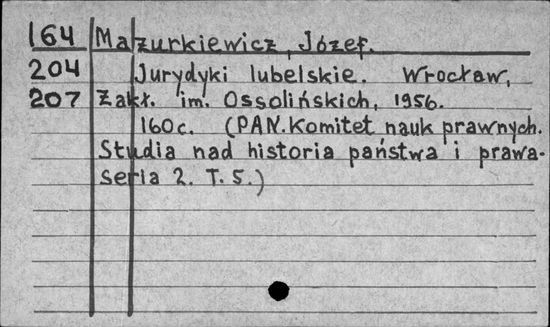 164 Mazurkiewicz, Józef.
204 Jurydyki lubelskie. Wrocław,
207 Zakł. im. Ossolińskich, 1956.
160c. (PAN. Komitet nauk prawnych.
Studia nad historia państwa i prawa-
seria 2. T. 5.)